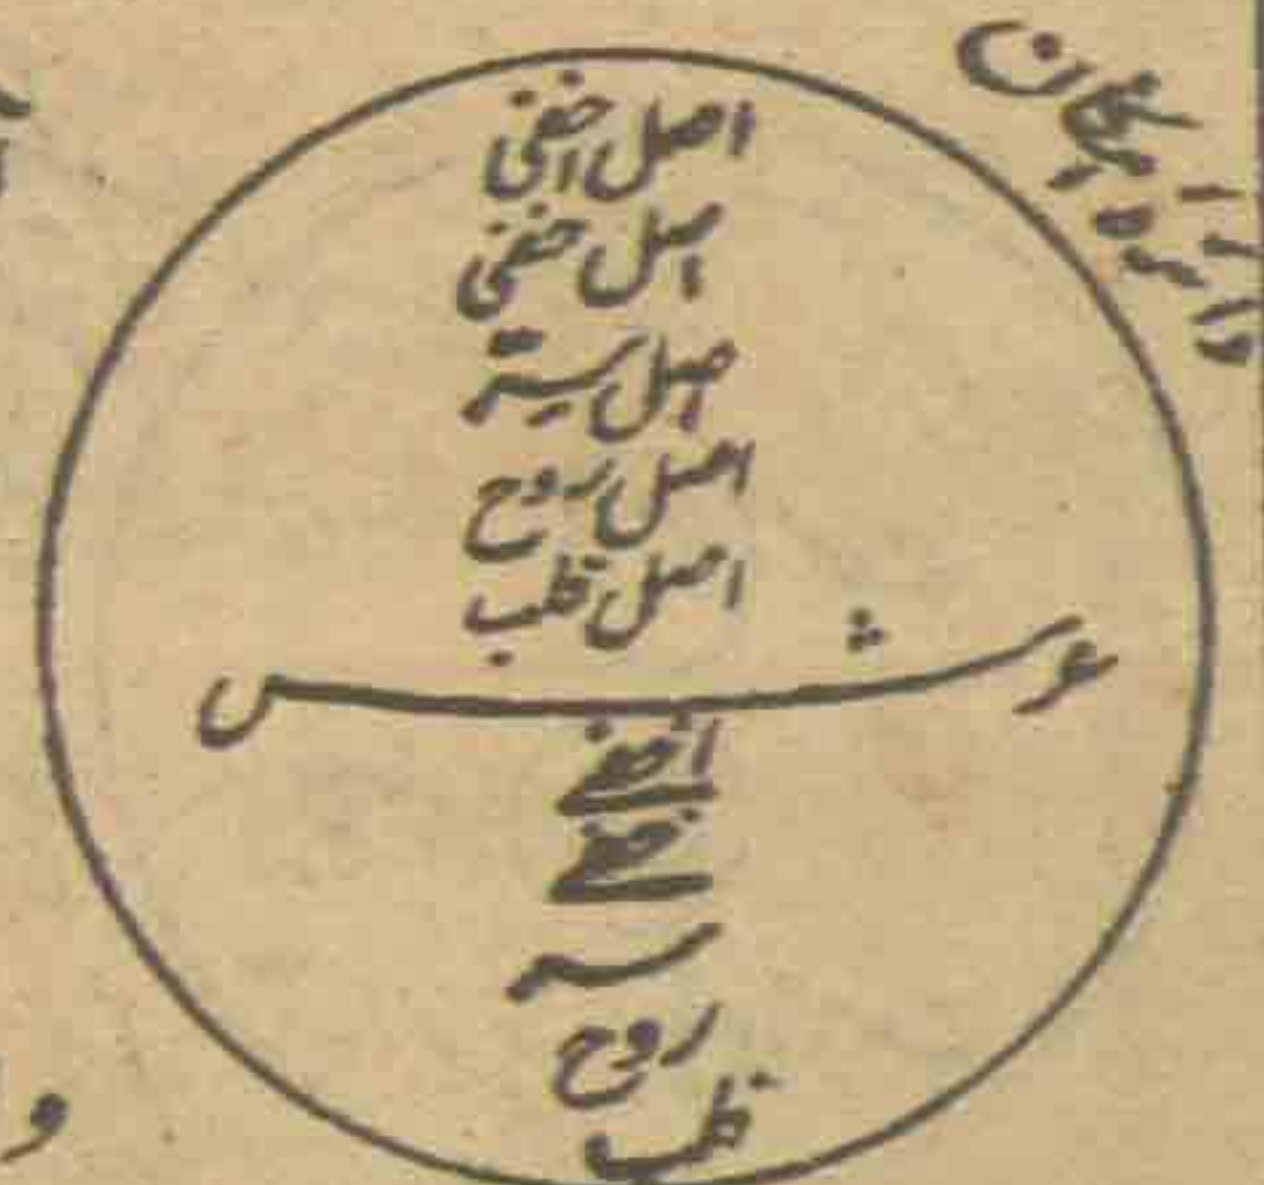 دائرہ امکان
اصل اخفی
اصل خفی
اصل سِرّ
اصل روح
اصل قلب
عرش
اخفے
خفے
سر
روح
قلب
و